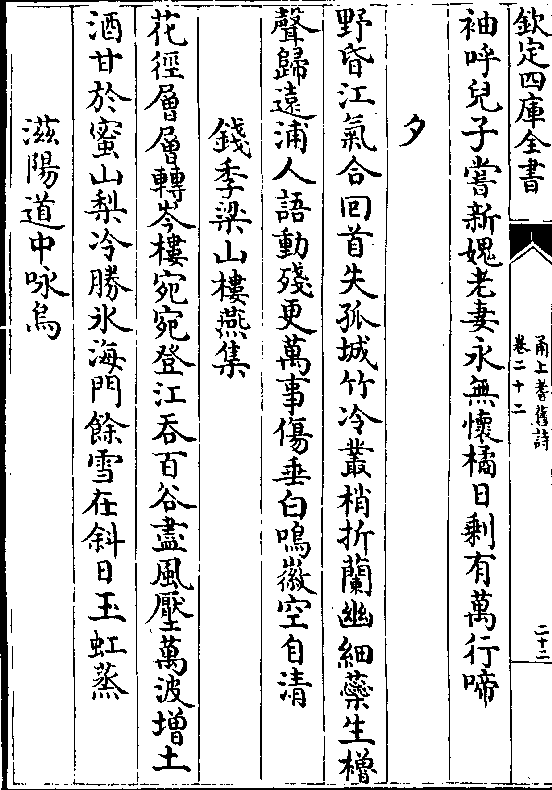 欽定四庫全書
甬上耆舊詩
卷二十二
二十二
袖呼兒子嘗新媿老妻永無懷橘日剩有萬行啼
夕
野昏江氣合回首失孤城竹冷叢梢折蘭幽細蘂生櫓
聲歸遠浦人語動殘更萬事傷垂白鳴徽空自清
錢季梁山樓燕集
花徑層層轉岑樓宛宛登江吞百谷盡風壓萬波增土
酒甘於蜜山梨冷勝氷海門餘雪在斜日玉虹蒸
滋陽道中咏烏